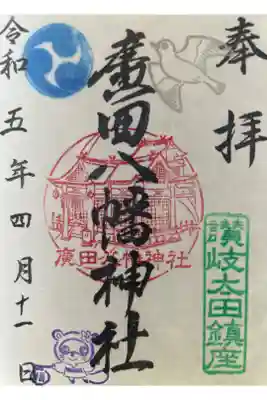 奉拝
讃岐太田鎮座
廣田八幡神社
廣田八幡神社
令和五年四月十一日